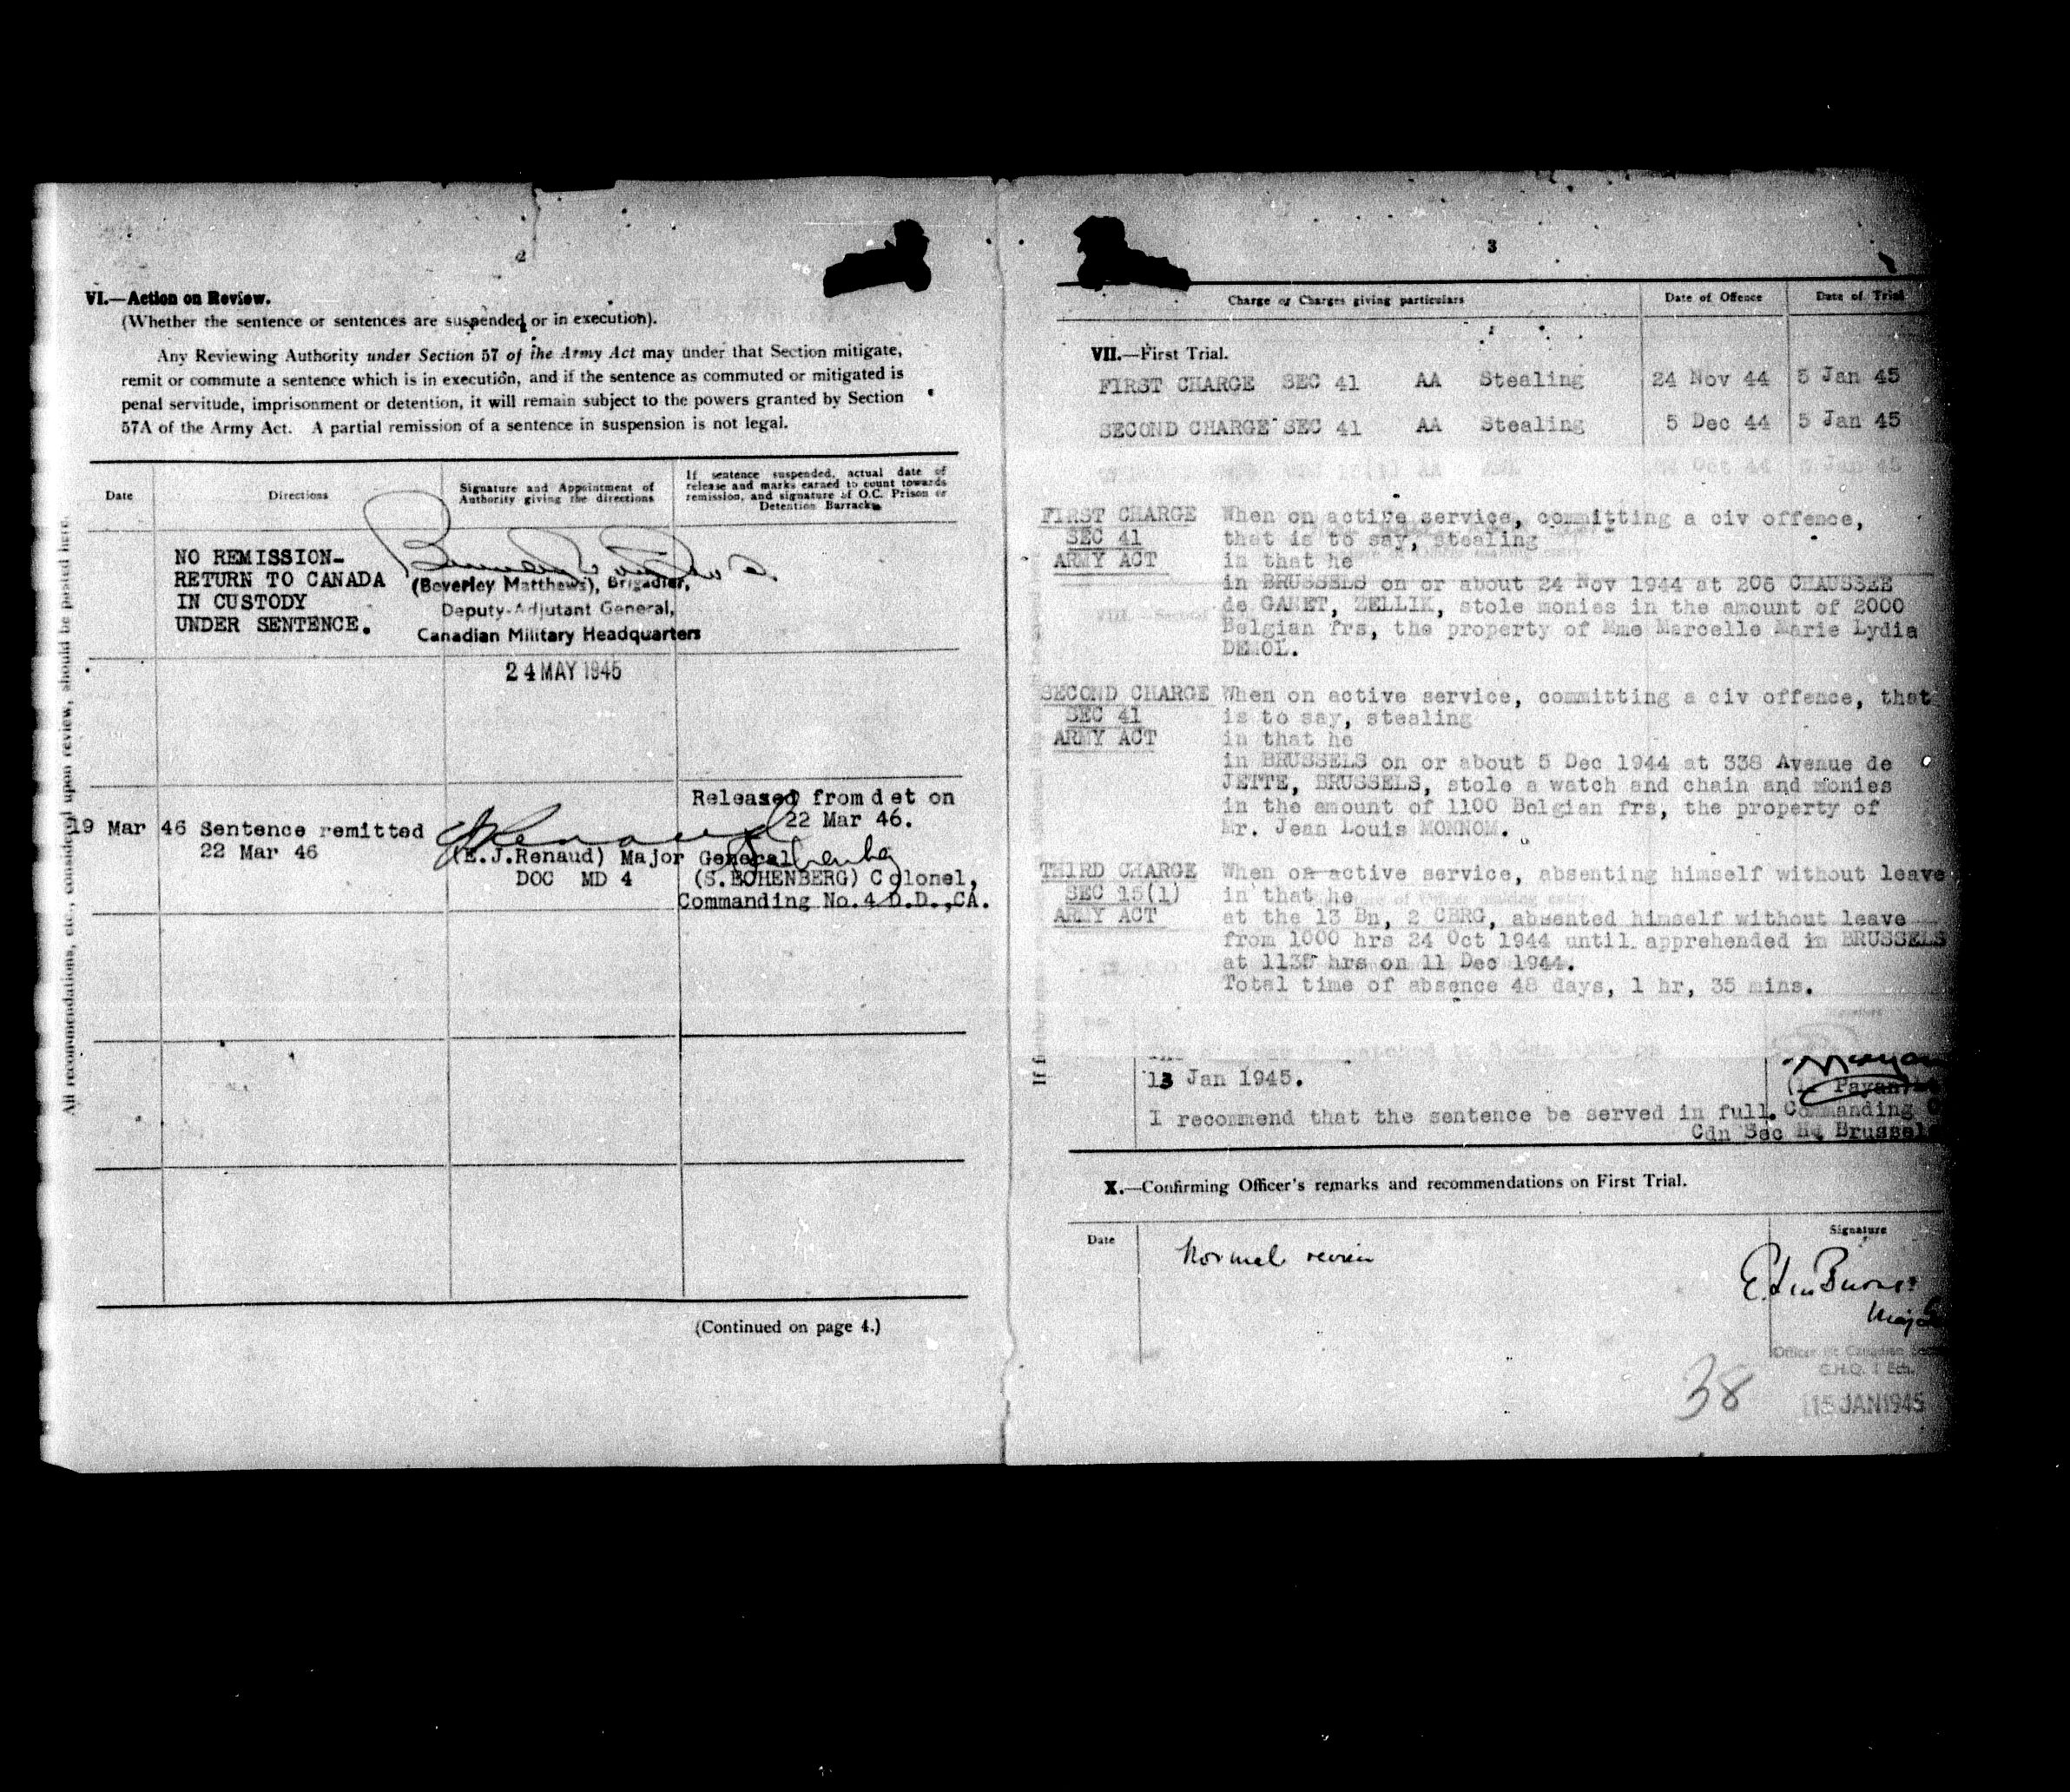 2
VI.—Action on Review.
(Whether the sentence or sentences are suspended or in execution).
Any Reviewing Authority under Section 57 of the Army Act may under that Section mitigate,
remit or commute a sentence which is in execution, and if the sentence as commuted or mitigated is
penal servitude, imprisonment or detention, it will remain subject to the powers granted by Section
57A of the Army Act. A partial remission of a sentence in suspension is not legal.
Date
Directions
Signature and Appointment of
Authority giving the directions
If sentence suspended, actual date of
release and marks earned to count towards
remission, and signature of O.C. Prison or
Detention Barracks
NO REMISSION-
RETURN TO CANADA
IN CUSTODY
UNDER SENTENCE.
(Beverley Matthews), Brigadier,
Deputy-Adjutant General,
Canadian Military Headquarters
24 MAY 1945
19 Mar 46 Sentence remitted
22 Mar 46
(E.J.Renaud) Major General
DOC MD 4
Released from det on
22 Mar 46.
(S.ECHENBERG) Colonel,
Commanding No.4 D.D.,CA.
All recommendations, etc., considered upon review, should be pasted here.
(Continued on page 4.)
3
Charge or Charges giving particulars
Date of Offence
Date of Trial
VII.—First Trial.
FIRST CHARGE SEC 41 AA Stealing 24 Nov 44 5 Jan 45
SECOND CHARGE SEC 41 AA Stealing 5 Dec 44 5 Jan 45
FIRST CHARGE
SEC 41
ARMY ACT
When on active service, committing a civ offence,
that is to say, stealing
in that he
in BRUSSELS on or about 24 Nov 1944 at 206 CHAUSSEE
de GANET, ZELLIK, stole monies in the amount of 2000
Belgian frs, the property of Mme Marcelle Marie Lydia
DEMOL.
SECOND CHARGE
SEC 41
ARMY ACT
When on active service, committing a civ offence, that
is to say, stealing
in that he
in BRUSSELS on or about 5 Dec 1944 at 338 Avenue de
JETTE, BRUSSELS, stole a watch and chain and monies
in the amount of 1100 Belgian frs, the property of
Mr. Jean Louis MONNOM.
THIRD CHARGE
SEC 15(1)
ARMY ACT
When on active service, absenting himself without leave
in that he
at the 13 Bn, 2 CBRG, absented himself without leave
from 1000 hrs 24 Oct 1944 until apprehended in BRUSSELS
at 1135 hrs on 11 Dec 1944.
Total time of absence 48 days, 1 hr, 35 mins.
If
13 Jan 1945.
I recommend that the sentence be served in full.
Payan
Commanding
Cdn Sec HQ Brussels
X.—Confirming Officer's remarks and recommendations on First Trial.
Date
Signature
Normal review
Maj
G.H.Q. 1 Ech.
15 JAN 1945
38